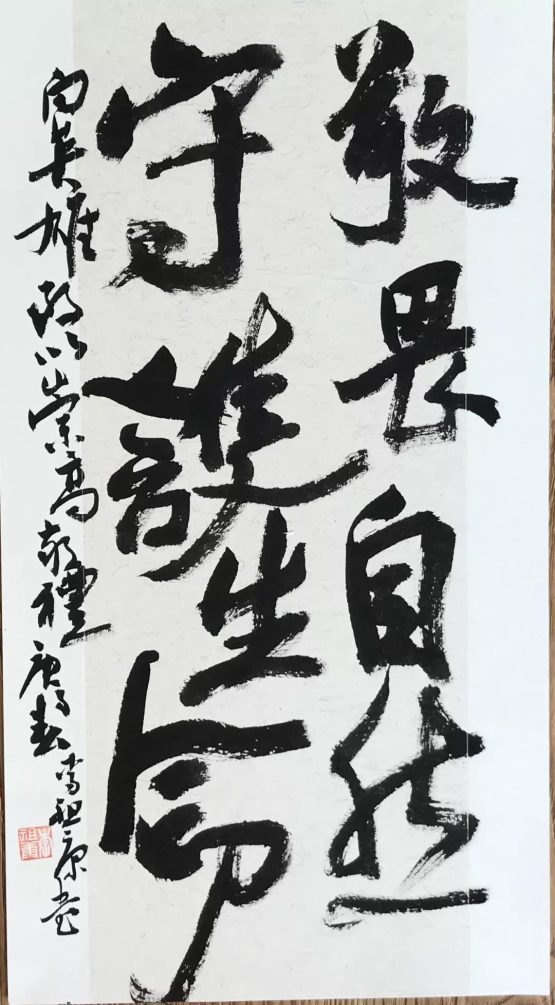 敬畏自然
守護生命
向英雄致以崇高敬禮 庚子春 李祖康書